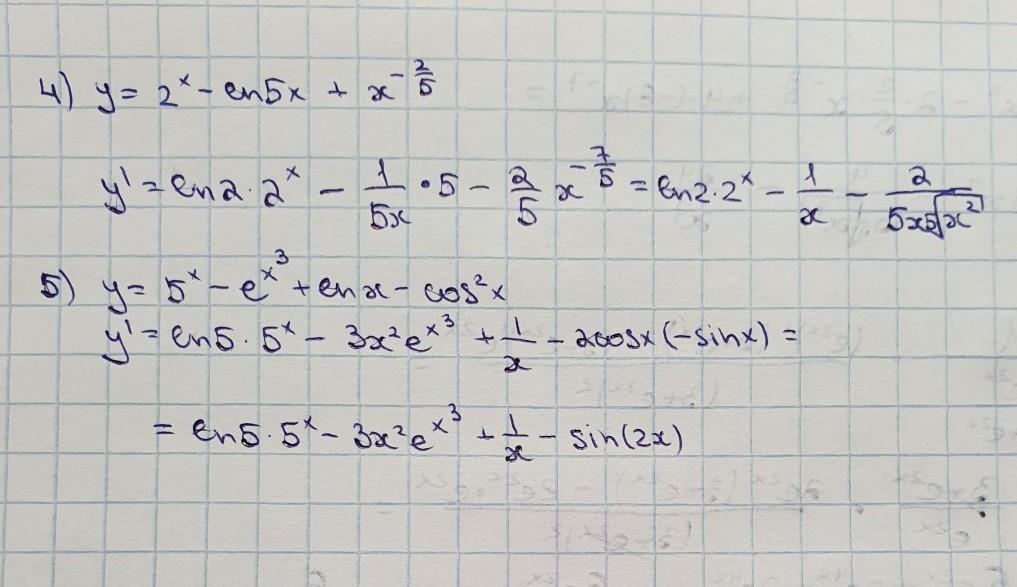 4) y = 2^x - ln5x + x^{-2/5}
y' = ln2·2^x - 1/5x · 5 - 2/5 x^{-7/5} = ln2·2^x - 1/x - 2/(5x⁵√x²)
5) y = 5^x - e^{x^3} + lnx - cos²x
y' = ln5·5^x - 3x²e^{x^3} + 1/x - 2cosx(-sinx) =
= ln5·5^x - 3x²e^{x^3} + 1/x - sin(2x)